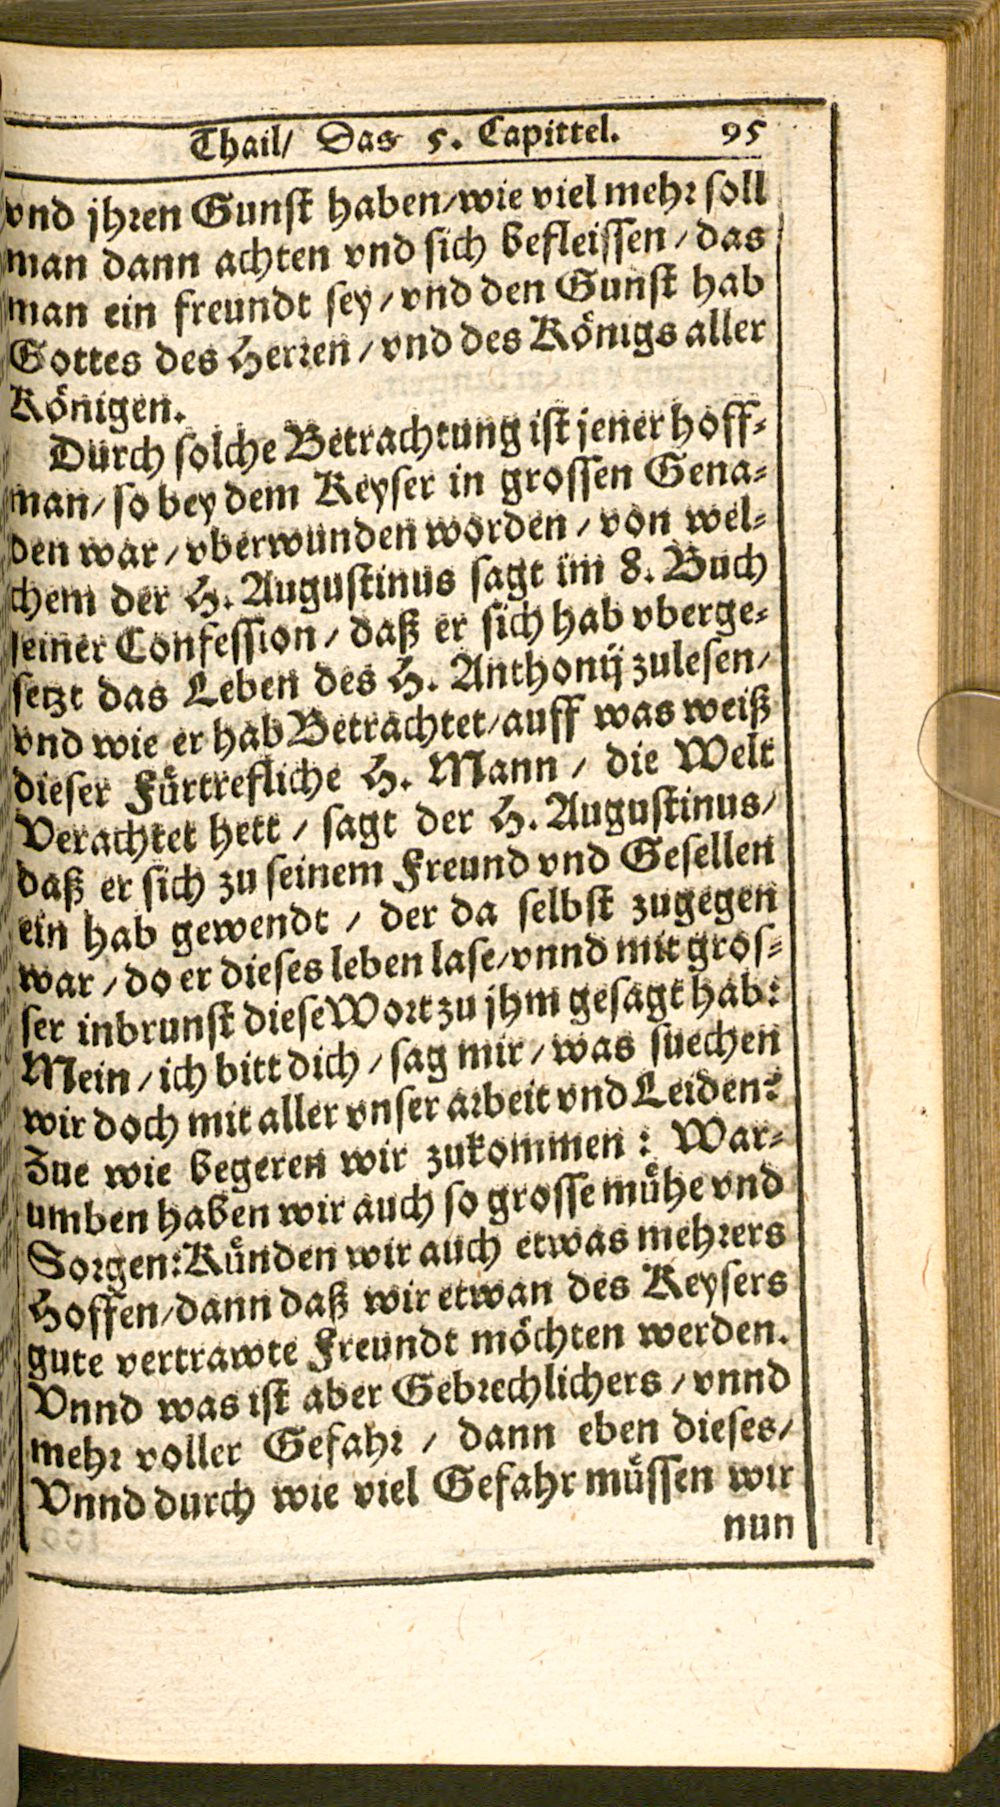 Thail/ Das 5. Capittel. 95
vnd jhren Gunst haben/wie viel mehr soll
man dann achten vnd sich befleissen/das
man ein freundt sey/vnd den Gunst hab
Gottes des Herren/vnd des Königs aller
Königen.
Durch solche Betrachtung ist jener hoff-
man/so bey dem Keyser in grossen Gena-
den war/vberwunden worden/von wel-
chem der H. Augustinus sagt im 8. Buch
seiner Confession/daß er sich hab vberge-
setzt das Leben des H. Anthonij zulesen/
vnd wie er hab Betrachtet/auff was weiß
dieser Fürtrefliche H. Mann/die Welt
Verachtet hett/sagt der H. Augustinus/
daß er sich zu seinem Freund vnd Gesellen
ein hab gewendt/der da selbst zugegen
war/do er dieses leben lase/vnnd mit gros-
ser inbrunst diese Wort zu jhm gesagt hab:
Mein/ich bitt dich/sag mir/was suechen
wir doch mit aller vnser arbeit vnd Leiden?
Zue wie begeren wir zukommen: War-
umben haben wir auch so grosse mühe vnd
Sorgen: Künden wir auch etwas mehrers
Hoffen/dann daß wir etwan des Keysers
gute vertrawte Freundt möchten werden.
Vnnd was ist aber Gebrechlichers/vnnd
mehr voller Gefahr/dann eben dieses/
Vnnd durch wie viel Gefahr müssen wir
nun